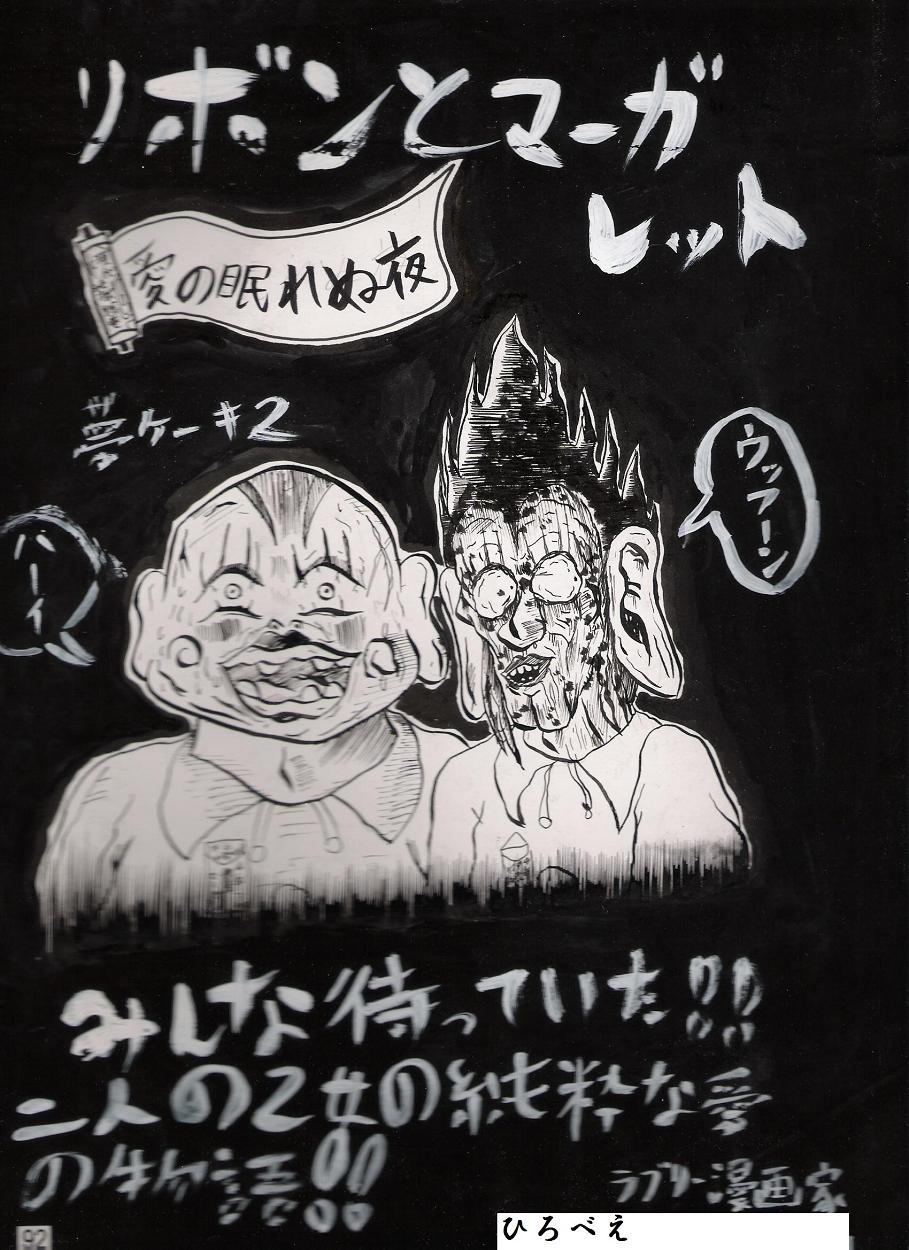 リボンとマーガ
レット
愛の眠れぬ夜
夢ケーキ2
ウッフーン
ハーイ
みんな待っていた!!
二人の乙女の純粋な愛
の物語!!
ラブリー漫画家
ひろべえ
92